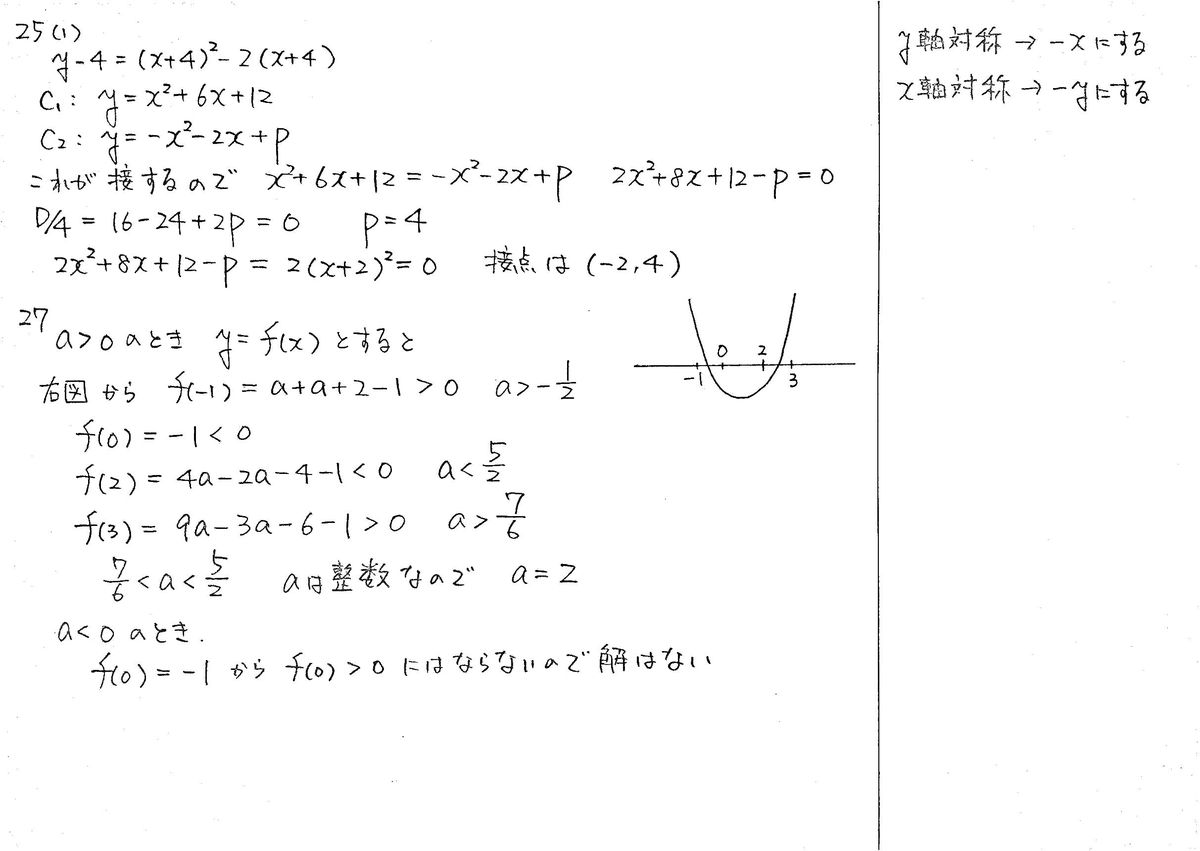 25(1)
y-4=(x+4)²-2(x+4)
C₁: y=x²+6x+12
C₂: y=-x²-2x+p
これが接するので x²+6x+12=-x²-2x+p 2x²+8x+12-p=0
D/4=16-24+2p=0 p=4
2x²+8x+12-p=2(x+2)²=0 接点は(-2,4)
27
a>0のとき y=f(x)とすると
右図から f(-1)=a+a+2-1>0 a>-1/2
f(0)=-1<0
f(2)=4a-2a-4-1<0 a<5/2
f(3)=9a-3a-6-1>0 a>7/6
7/6<a<5/2 aは整数なので a=2
a<0のとき.
f(0)=-1から f(0)>0にはならないので解はない
0 2
-1 3
y軸対称→-xにする
x軸対称→-yにする